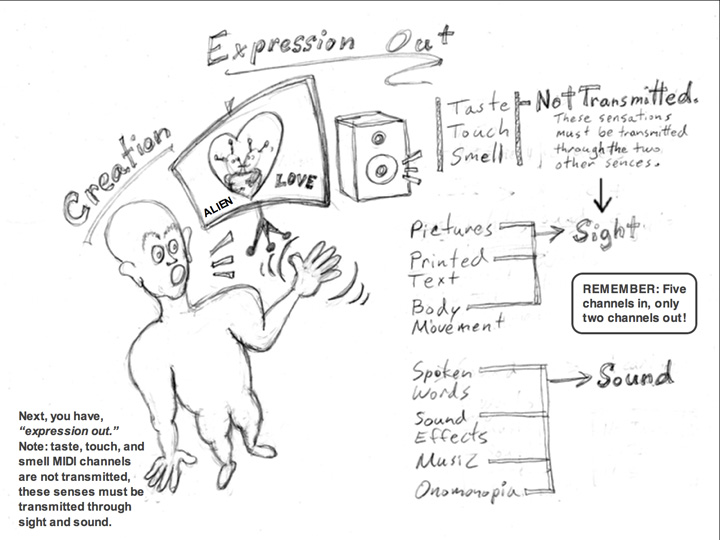 Expression Out
Creation
ALIEN
LOVE
Taste
Touch
Smell
Not Transmitted.
These sensations
must be transmitted
through the two
other sences.
Pictures
Printed
Text
Body
Movement
Sight
REMEMBER: Five
channels in, only
two channels out!
Spoken
Words
Sound
Effects
Music
Onomonopia
Sound
Next, you have,
“expression out.”
Note: taste, touch, and
smell MIDI channels
are not transmitted,
these senses must be
transmitted through
sight and sound.